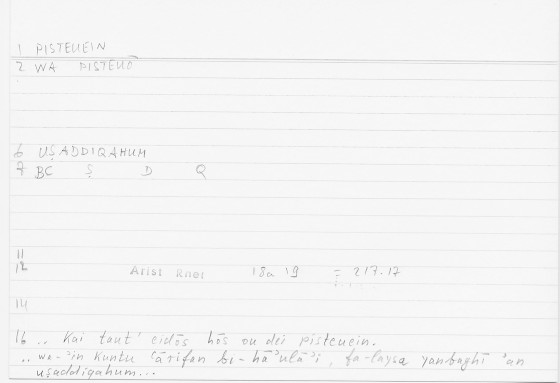 1 PISTEUEIN
2 WA PISTEUŌ
6 UṢADDIQAHUM
7 BC Ṣ D Q
11
12 Arist Rhet 18a 19 = 217.17
14
16 .. Kai taut' eidōs hōs ou dei pisteuein.
.. wa-'in kuntu ʿārifan bi-hā'ulā'i, fa-laysa yanbaghī 'an
uṣaddiqahum...